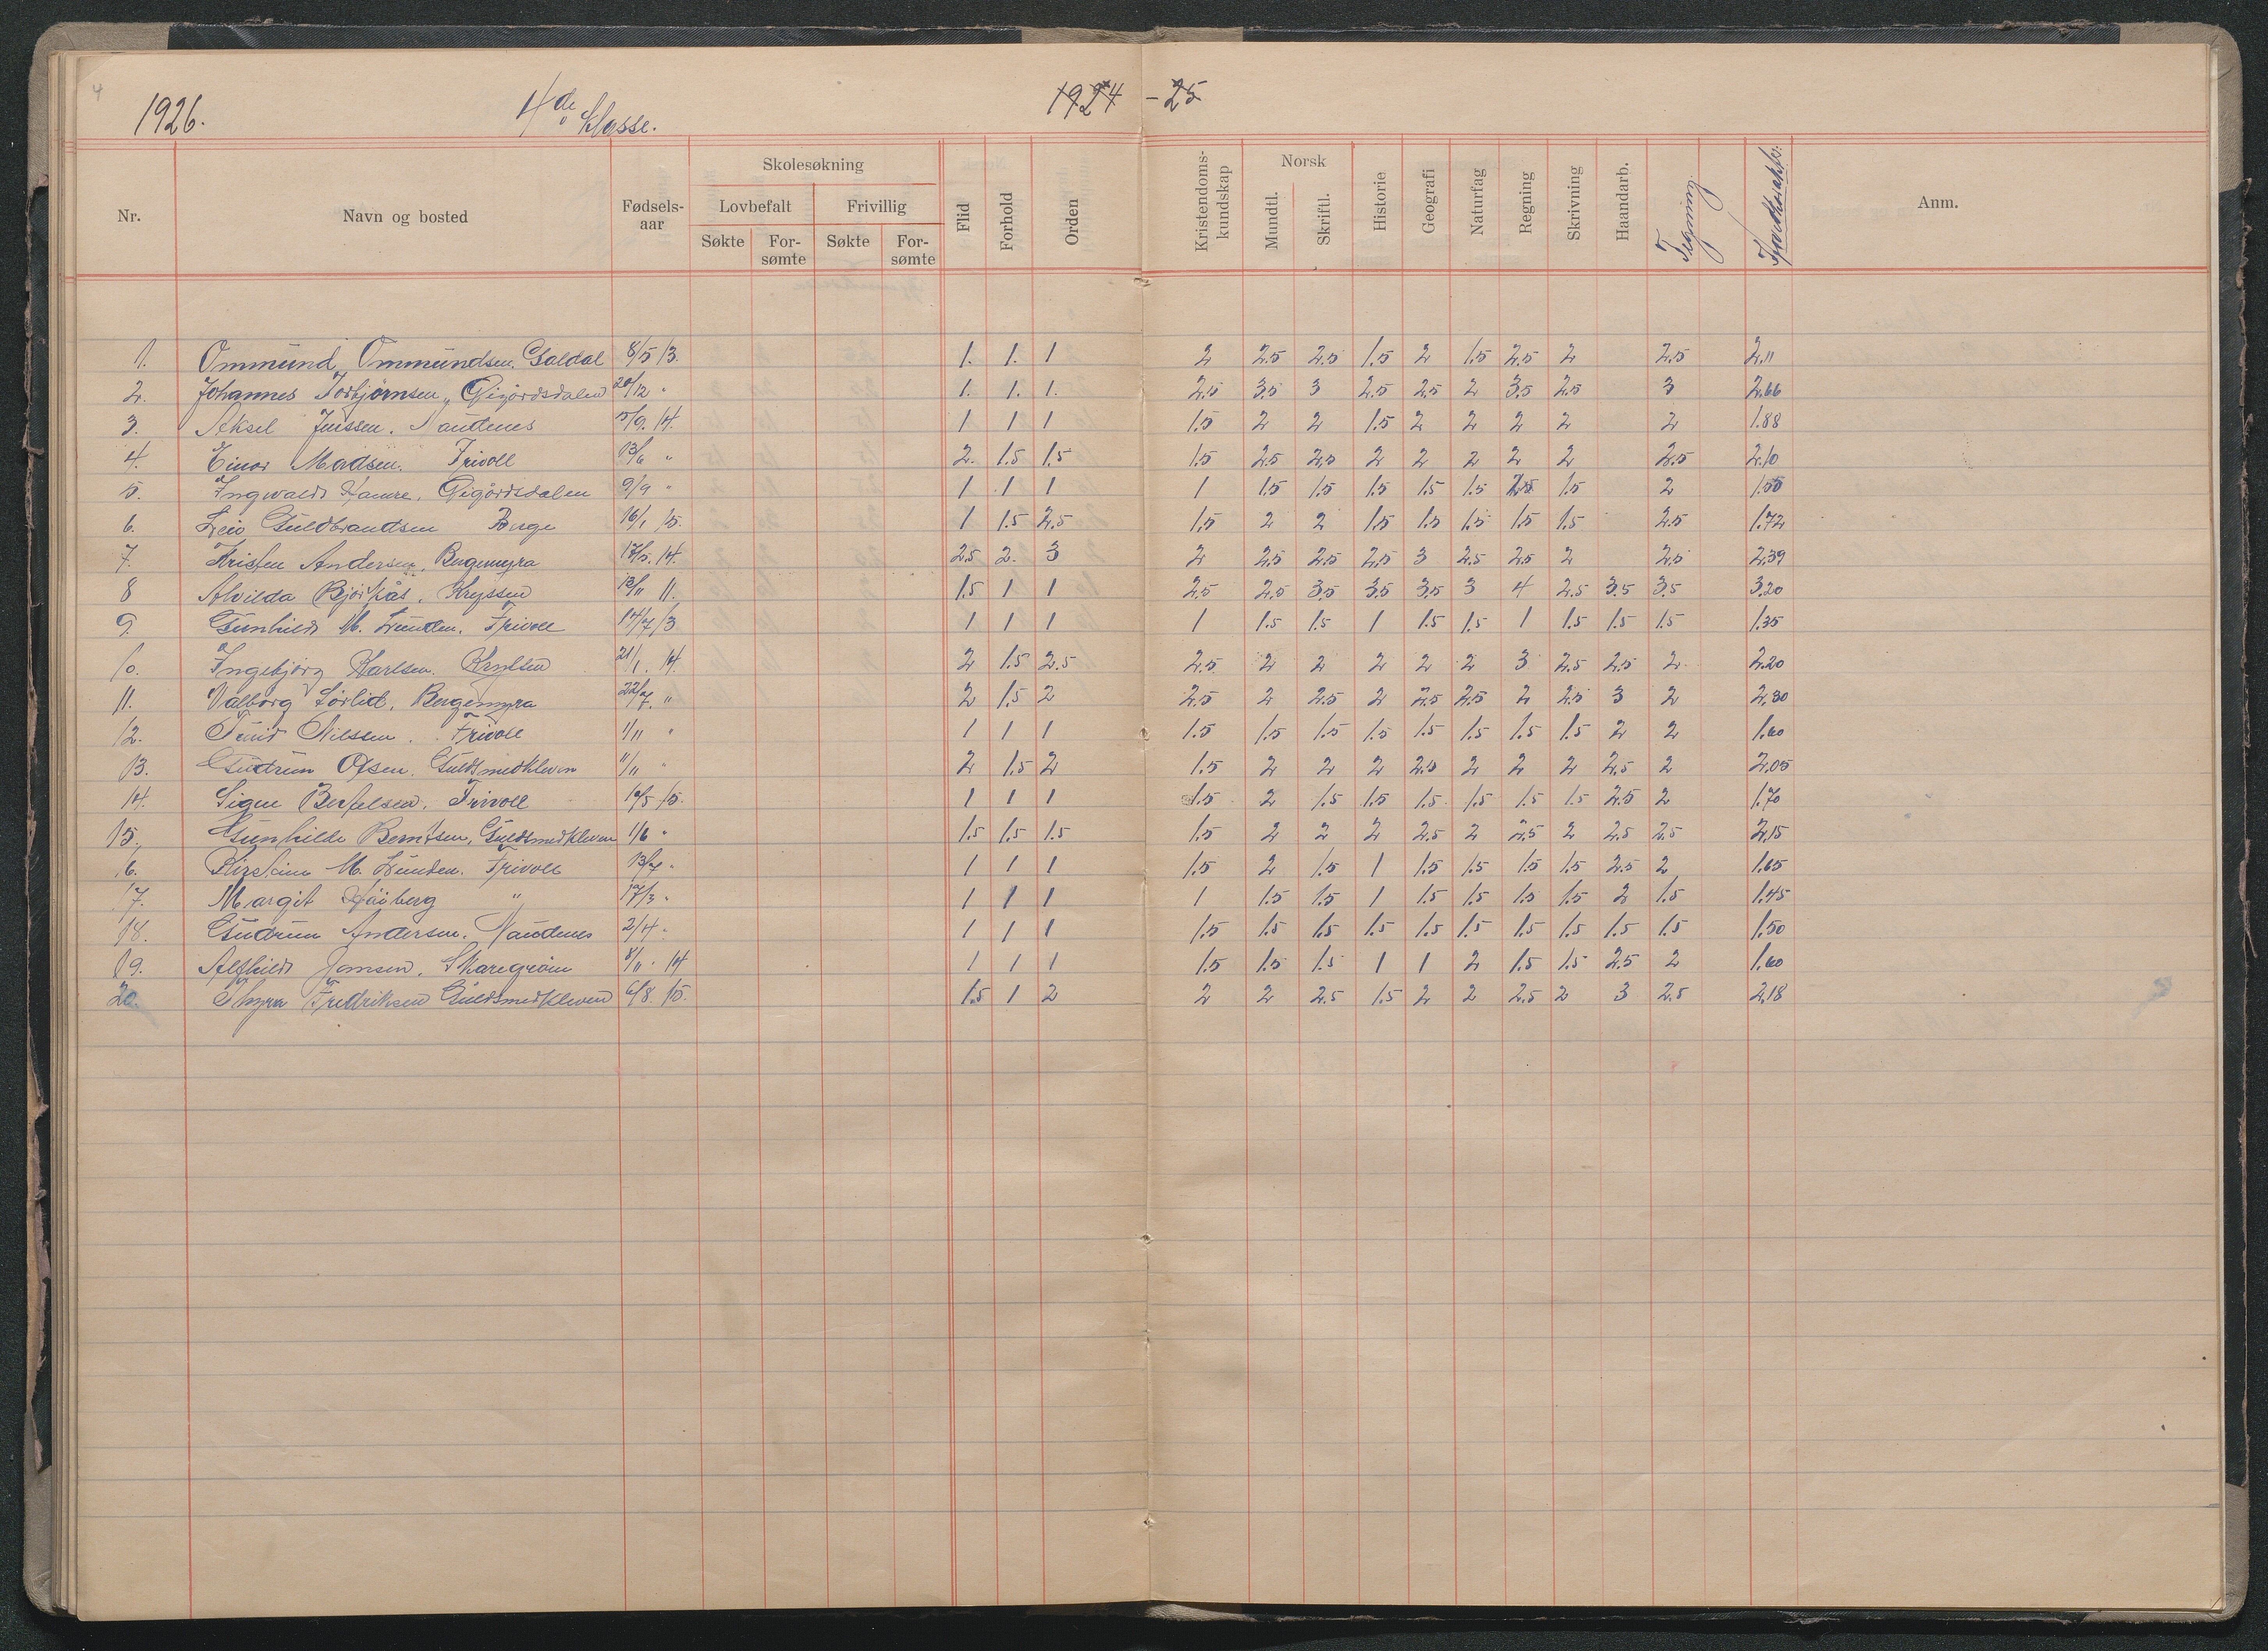 4
1926. 4de Klasse. 1924 - 25
Nr. Navn og bosted Fødsels-aar Skolesøkning Lovbefalt Søkte For-sømte Frivillig Søkte For-sømte Flid Forhold Orden Kristendoms-kundskap Norsk Mundtl. Skriftl. Historie Geografi Naturfag Regning Skrivning Haandarb. Tegning Anm.
1. Ommund Ommundsen Galdal 8/5 13. 1. 1. 1 2 2.5 2.5 1.5 2 1.5 2.5 2 2.5 2.11
2. Johannes Torbjørnsen, Gigårdsdalen 20/12 " 1. 1. 1. 2.5 3.5 3 2.5 2.5 2 3.5 2.5 3 2.66
3. Aksel Jenssen. Naudenes 5/9. 14. 1 1 1 1.5 2 2 1.5 2 2 2 2 2 1.88
4. Einar Madsen. Frivoll 13/6 " 2. 1.5 1.5 1.5 2.5 2.5 2 2 2 2 2 2.5 2.10
5. Ingvald Hamre, Gigårdsdalen 9/9 " 1 1 1 1 1.5 1.5 1.5 1.5 1.5 1.5 2
6. Leiv Guldbrandsen Berge 16/1 15. 1 1.5 2.5 1.5 2 2 1.5 1.5 1.5 1.5 1.5 2.5 1.72
7. Kristen Andersen, Bergemyra 17/5. 14. 2.5 2. 3 2 2.5 2.5 2.5 3 2.5 2.5 2 2.5 2.39
8 Alvilda Bjørkås. Kryssen 11. 1.5 1 1 2.5 2.5 3.5 3.5 3.5 3 4 2.5 3.5 3.5 3.20
9. Gunhild M. Lunden. Frivoll 1 1 1 1 1.5 1.5 1 1.5 1.5 1 1.5 1.5 1.5 1.35
10. Ingebjørg Karlsen. 21/1. 14. 2 1.5 2.5 2.5 2 2 2 2 2 3 2.5 2.5 2 2.20
11. Valborg Sørlid, Bergemyra 22/7. " 2 1.5 2 2.5 2 2.5 2 2.5 2.5 2 2.5 3 2 2,30
12. Turid Nilssen. Frivoll 1/11 " 1 1 1 1.5 1.5 1.5 1.5 1.5 1.5 1.5 1.5 2 2 1.60
13. Gudrun Olsen. Guldsmedkleven 11/11 " 2 1.5 2 1.5 2 2 2 2.5 2 2 2 2.5 2 2.05
14. Signe Bertelsen, Frivoll 15. 1 1 1 1.5 2 1.5 1.5 1.5 1.5 1.5 1.5 2.5 2 1.70
15. Gunhilde Berntsen, Guldsmedkleven 1/6 " 1.5 1.5 1.5 1.5 2 2 2 2.5 2 2.5 2 2.5 2.5 2,15
16. M. Lunden. Frivoll 13/7 " 1 1 1 1.5 2 1.5 1 1.5 1.5 1.5 1.5 2.5 2 1.65
17. Margit Høiberg " 17/3 " 1 1 1 1 1.5 1.5 1 1.5 1.5 1.5 1.5 2 1.5 1.45
18. Gudrun Andersen. Naudenes 2/4 " 1 1 1 1.5 1.5 1.5 1.5 1.5 1.5 1.5 1.5 1.5 1.5 1.50
19. Alfhild Jomsen, Skaregrøm 8/11. 14 1 1 1 1.5 1.5 1.5 1 1 2 1.5 1.5 2.5 2 1.60
20. Thyra Fredriksen Guldsmedkleven 6/8. 15. 1.5 1 2 2 2 2.5 1.5 2 2 2.5 2 3 2.5 2,18